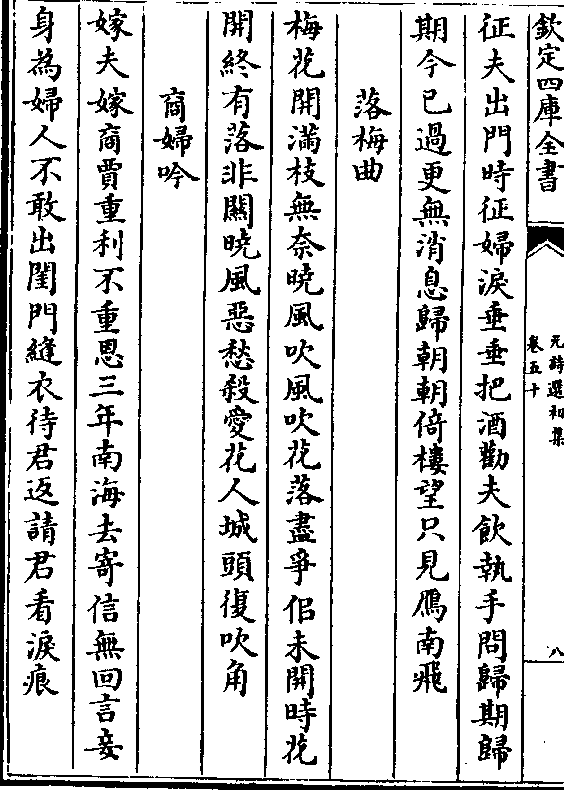 欽定四庫全書
元詩選初集
卷五十
八
征夫出門時征婦淚垂垂把酒勸夫飲執手問歸期歸
期今已過更無消息歸朝朝倚樓望只見鴈南飛
落梅曲
梅花開滿枝無奈曉風吹風吹花落盡爭侶未開時花
開終有落非關曉風惡愁殺愛花人城頭復吹角
商婦吟
嫁夫嫁商賈重利不重恩三年南海去寄信無回言妾
身為婦人不敢出閨門縫衣待君返請君看淚痕